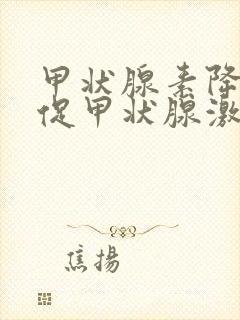 甲状腺素降
促甲状腺激
焦揚